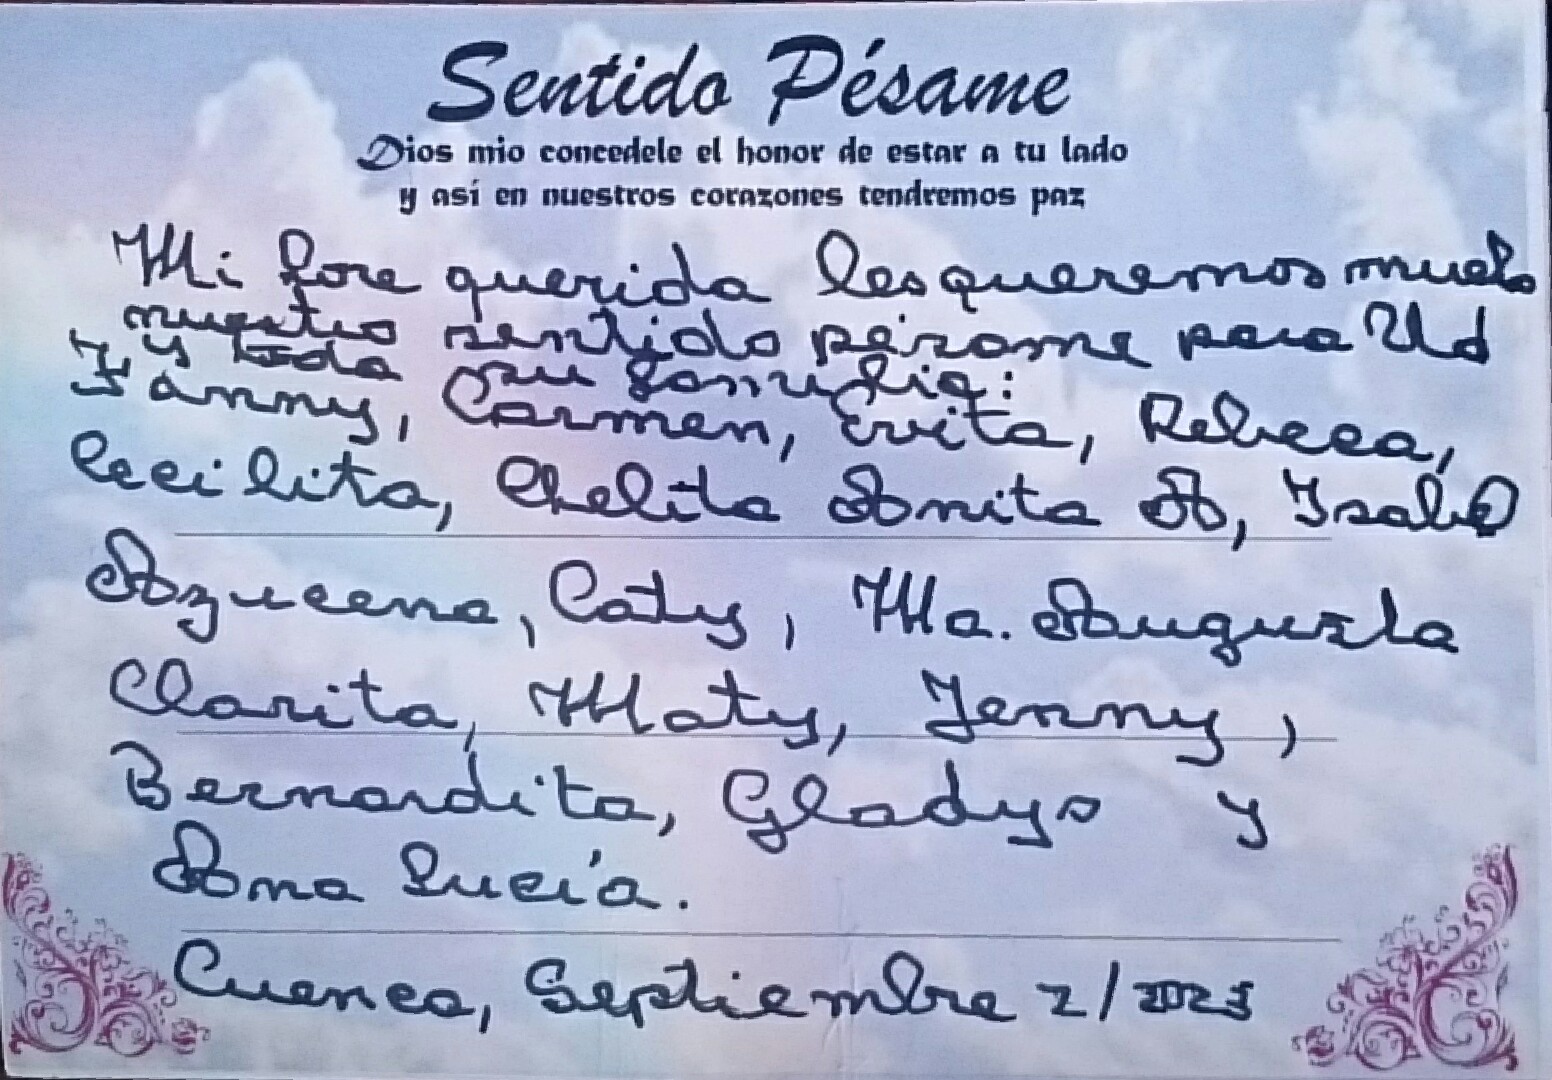 Sentido Pésame
Dios mio concedele el honor de estar a tu lado
y así en nuestros corazones tendremos paz
Mi Lore querida les queremos mucho
nuestro sentido pésame para Ud
y toda su familia:
Fanny, Carmen, Evita, Rebeca,
Cecilita, Chelita Anita A, Isabel
Azucena, Caty, Ma. Augusta
Clarita, Maty, Jenny,
Bernardita, Gladys y
Ana Lucía.
Cuenca, Septiembre 2/2023